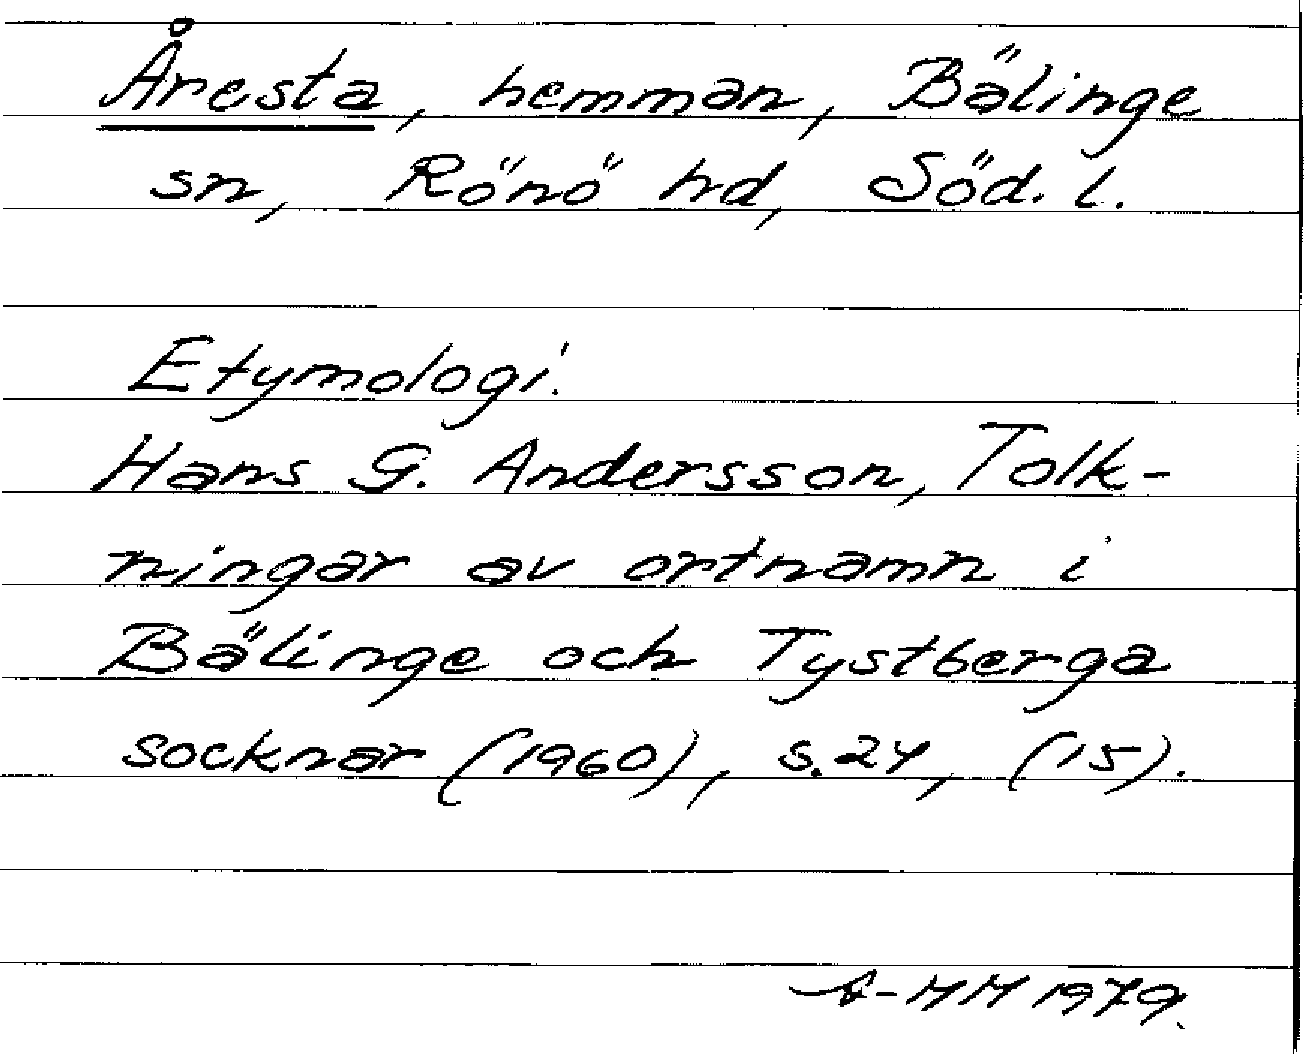 Åresta, hemman, Bälinge
sn, Rönö hd, Söd. l.
Etymologi.
Hans G. Andersson, Tolk-
ningar av ortnamn i
Bälinge och Tystberga
socknar (1960), s.24, (15).
A-MM 1979.